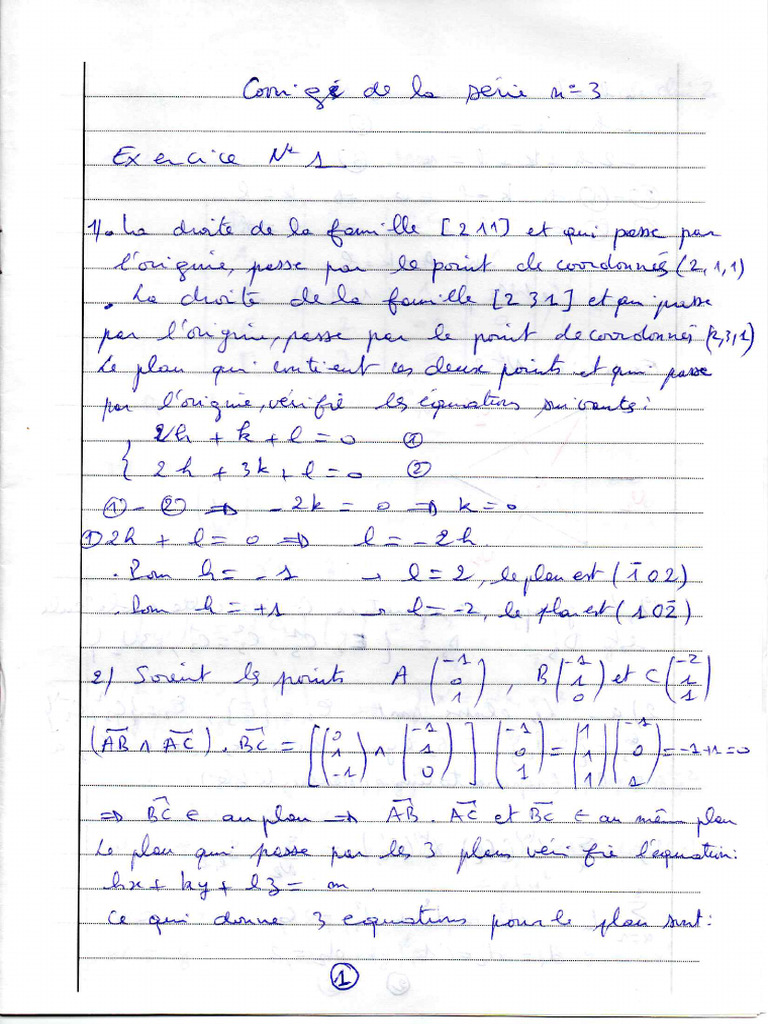 Corrigé de la série n° 3
Exercice N° 1
1) . La droite de la famille [2 1 1] et qui passe par
l'origine, passe par le point de coordonnés (2, 1, 1)
. La droite de la famille [2 3 1] et qui passe
par l'origine, passe par le point de coordonnés (2,3,1)
Le plan qui contient ces deux points et qui passe
par l'origine, vérifie les équations suivants :
{ 2h + k + l = 0 ①
{ 2h + 3k + l = 0 ②
① - ② ⇒ - 2k = 0 ⇒ k = 0
① 2h + l = 0 ⇒ l = - 2h
. Pour h = - 1 → l = 2, le plan est (1̄ 0 2)
. Pour h = +1 → l = -2, le plan est (1 0 2̄)
2) Soient les points A (-1 0 1), B (-1 1 0) et C (-2 1 1)
(AB ∧ AC) . BC = [(0 1 -1) ∧ (-1 1 0)] (-1 0 1) = (1 1 1) (-1 0 1) = -1+1 = 0
⇒ BC ∈ au plan ⇒ AB . AC et BC ∈ au même plan
Le plan qui passe par les 3 plans vérifie l'équation :
hx + ky + lz = m .
Ce qui donne 3 equations pour le plan sont :
①